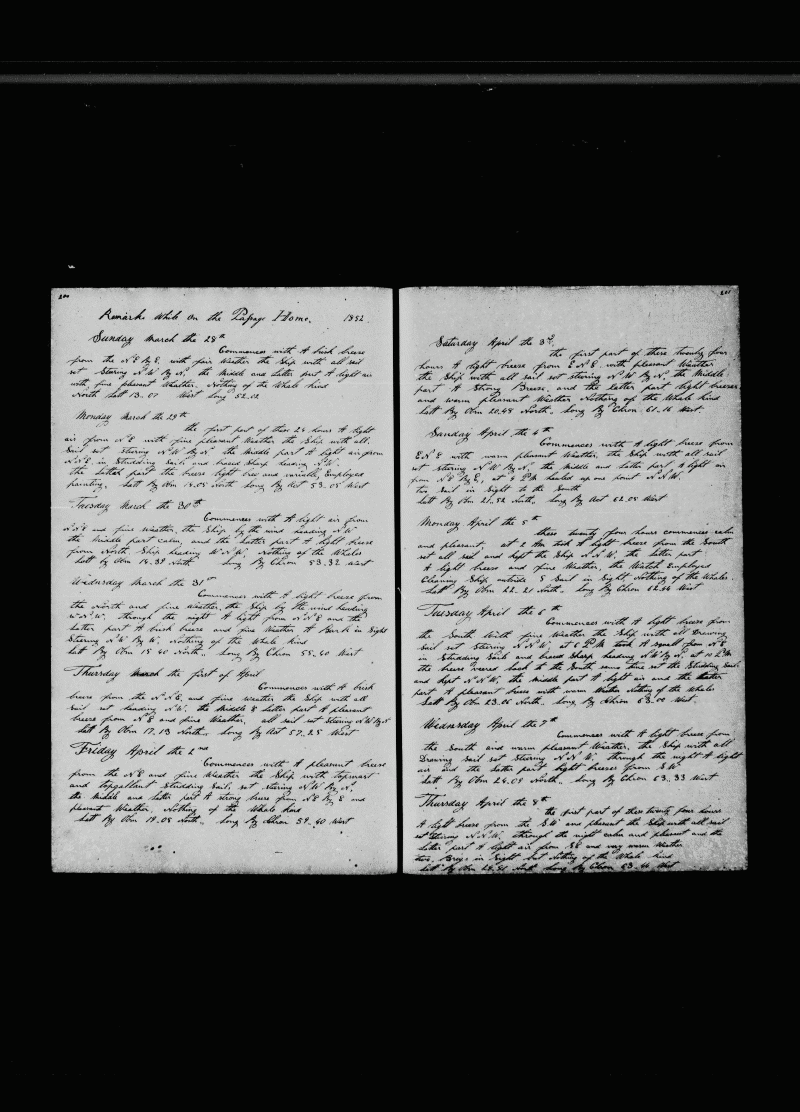 200
Remarks while on the Passage Home. 1852
Sunday March the 28th
Commences with A brisk breeze
from the N.E. By E, with fair Weather the Ship with all sail
set Stering N.W. By N, the Middle and Latter part A light air
with fine pleasant Weather, Nothing of the Whale kind
North Latt 13.07 West Long 52.02
Monday March the 29th
the first part of these 24 hours A light
air from N.E with fine pleasant Weather the Ship with all
Sail set Stering N.W By N the Middle part A light air from
N.N.E. in Studding Sails and braced Sharp heading N.W.
the Latter part the breeze light and variable, Employed
painting, Latt By Obm 14.05 North Long By Act 53.05 West
Tuesday March the 30th
Commences with A light air from
N.N.E and fine Weather, the Ship by the wind heading N.W
the Middle part calm, and the Latter part A light breeze
from North Ship heading W.N.W, Nothing of the Whales
Latt by Obm 14.39 North Long By Chron 53.32 West
Wednesday March the 31st
Commences with A light breeze from
the North and fine Weather, the Ship by the wind heading
W.N.W. through the night A light from N.N.E and the
Latter part A brisk breeze and fine Weather A Bark in Sight
Stering N.W By W, Nothing of the Whale kind
Latt By Obm 15.40 North Long By Chron 55.40 West
Thursday March the first of April
Commences with A brisk
breeze from the N.N.E, and fine Weather the Ship with all
sail set heading N.W. the Middle & Latter part A pleasant
breeze from N.E and fine Weather, all sail set Stering N.W By N
Latt By Obm 17.13 North, Long By Act 57.25 West
Friday April the 2nd
Commences with A pleasant breeze
from the N.E and fine Weather the Ship with topmast
and topgallant Studding Sails, set stering N.W By N,
the Middle and Latter part A strong breeze from N.E By E and
pleasant Weather, Nothing of the Whale kind
Latt By Obm 19.08 North, Long By Chron 59.40 West
201
Saturday April the 3d
the first part of these twenty four
hours A light breeze from E.N.E. with pleasant Weather
the Ship with all sail set stering N.W By N. the Middle
part A Strong Breeze, and the latter part light breezes
and warm pleasant Weather Nothing of the Whale kind
Latt By Obm 20.48 North. Long By Chron 61.16 West
Sunday April the 4th
Commences with A light breeze from
E.N.E with warm pleasant Weather, the Ship with all sail
set Stering N.W By N, the Middle and latter part A light air
from N.E By E, at 4 P.M. hauled up one point N.N.W.
two Sail in Sight to the South
Latt By Obm 21.52 North, Long By Act 62.05 West
Monday April the 5th
these twenty four hours commences calm
and pleasant, at 2 Am took A light breeze from the South
set all sail and kept the Ship N.N.W, the latter part
A light breeze and fine Weather, the Watch Employed
Cleaning Ship outside 5 Sail in Sight Nothing of the Whales.
Latt By Obm 22.21 North, Long By Chron 62.44 West
Tuesday April the 6th
Commences with A light breeze from
the South With fine Weather the Ship with all Drawing
sail set Stering N.N.W, at 6 P.M. took A squall from N.E
in Studding Sails and braced Sharp heading N.W By N, at 10 P.M
the breeze veered back to the South same time set the Studding Sails
and kept N.N.W, the Middle part A light air and the Latter
part A pleasant breeze with warm Weather Nothing of the Whales
Latt By Obm 23.06 North, Long By Chron 63.00 West.
Wednesday April the 7th
Commences with A light breeze from
the South and warm pleasant Weather, the Ship with all
Drawing sail set Stering N.N.W, through the night A light
air and the latter part light breezes from S.W.
Latt By Obm 24.09 North, Long By Chron 63.33 West
Thursday April the 8th
the first part of these twenty four hours
A light breeze from the S.W and pleasant the Ship with all sail
set Stering N.N.W, through the night calm and pleasant and the
latter part A light air from SE and very warm Weather
two Brigs in Sight but Nothing of the Whale kind
Latt By Obm North Long By Chron 63.44 West